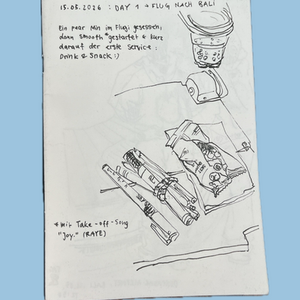 15.08.2026 : DAY 1 → FLUG NACH BALI
Ein paar Min im Flugi gesessen,
dann smooth gestartet & kurz
darauf der erste Service:
Drink & Snack :)
* mit Take-off-Song
"Joy." (RAYE)